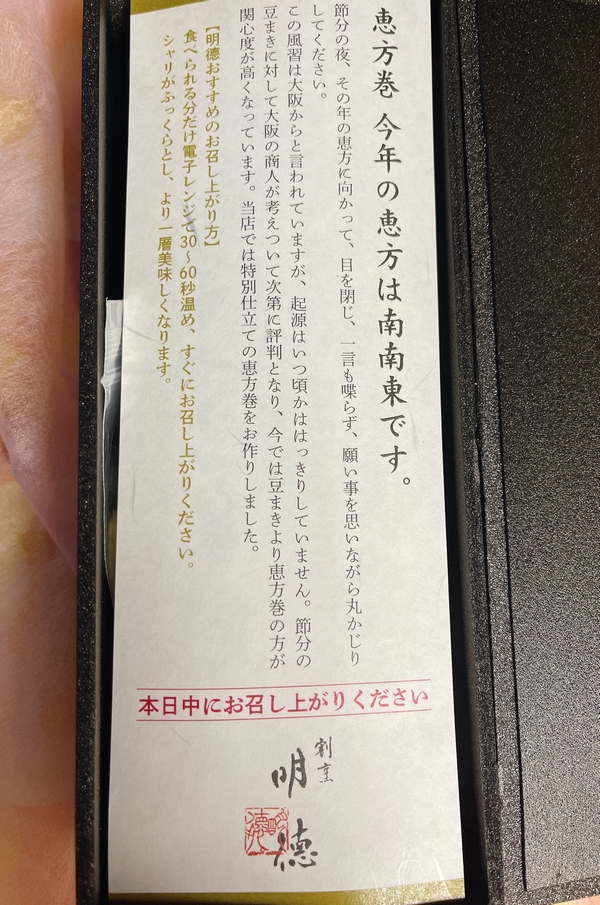 恵方巻 今年の恵方は南南東です。
節分の夜、その年の恵方に向かって、目を閉じ、一言も喋らず、願い事を思いながら丸かじり
してください。
この風習は大阪からと言われていますが、起源はいつ頃かははっきりしていません。節分の
豆まきに対して大阪の商人が考えついて次第に評判となり、今では豆まきより恵方巻の方が
関心度が高くなっています。当店では特別仕立ての恵方巻をお作りしました。
【明徳おすすめのお召し上がり方】
食べられる分だけ電子レンジで30〜60秒温め、すぐにお召し上がりください。
シャリがふっくらとし、より一層美味しくなります。
本日中にお召し上がりください
割烹
明徳